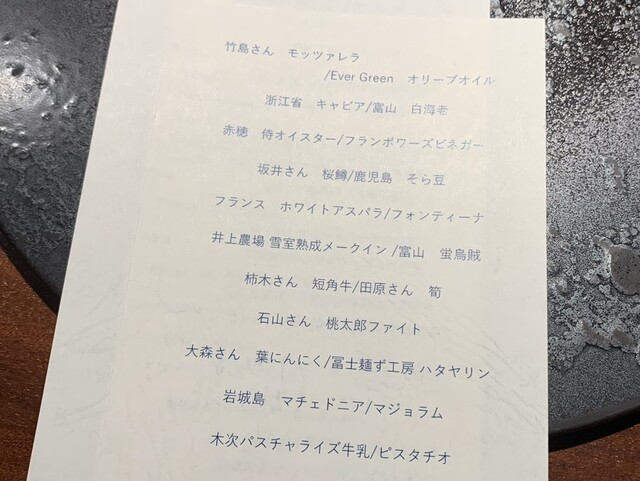 竹島さん　モッツァレラ
/Ever Green　オリーブオイル
浙江省　キャビア/富山　白海老
赤穂　侍オイスター/フランボワーズビネガー
坂井さん　桜鱒/鹿児島　そら豆
フランス　ホワイトアスパラ/フォンティーナ
井上農場 雪室熟成メークイン /富山　蛍烏賊
柿木さん　短角牛/田原さん　筍
石山さん　桃太郎ファイト
大森さん　葉にんにく/冨士麺ず工房 ハタヤリン
岩城島　マチェドニア/マジョラム
木次パスチャライズ牛乳/ピスタチオ